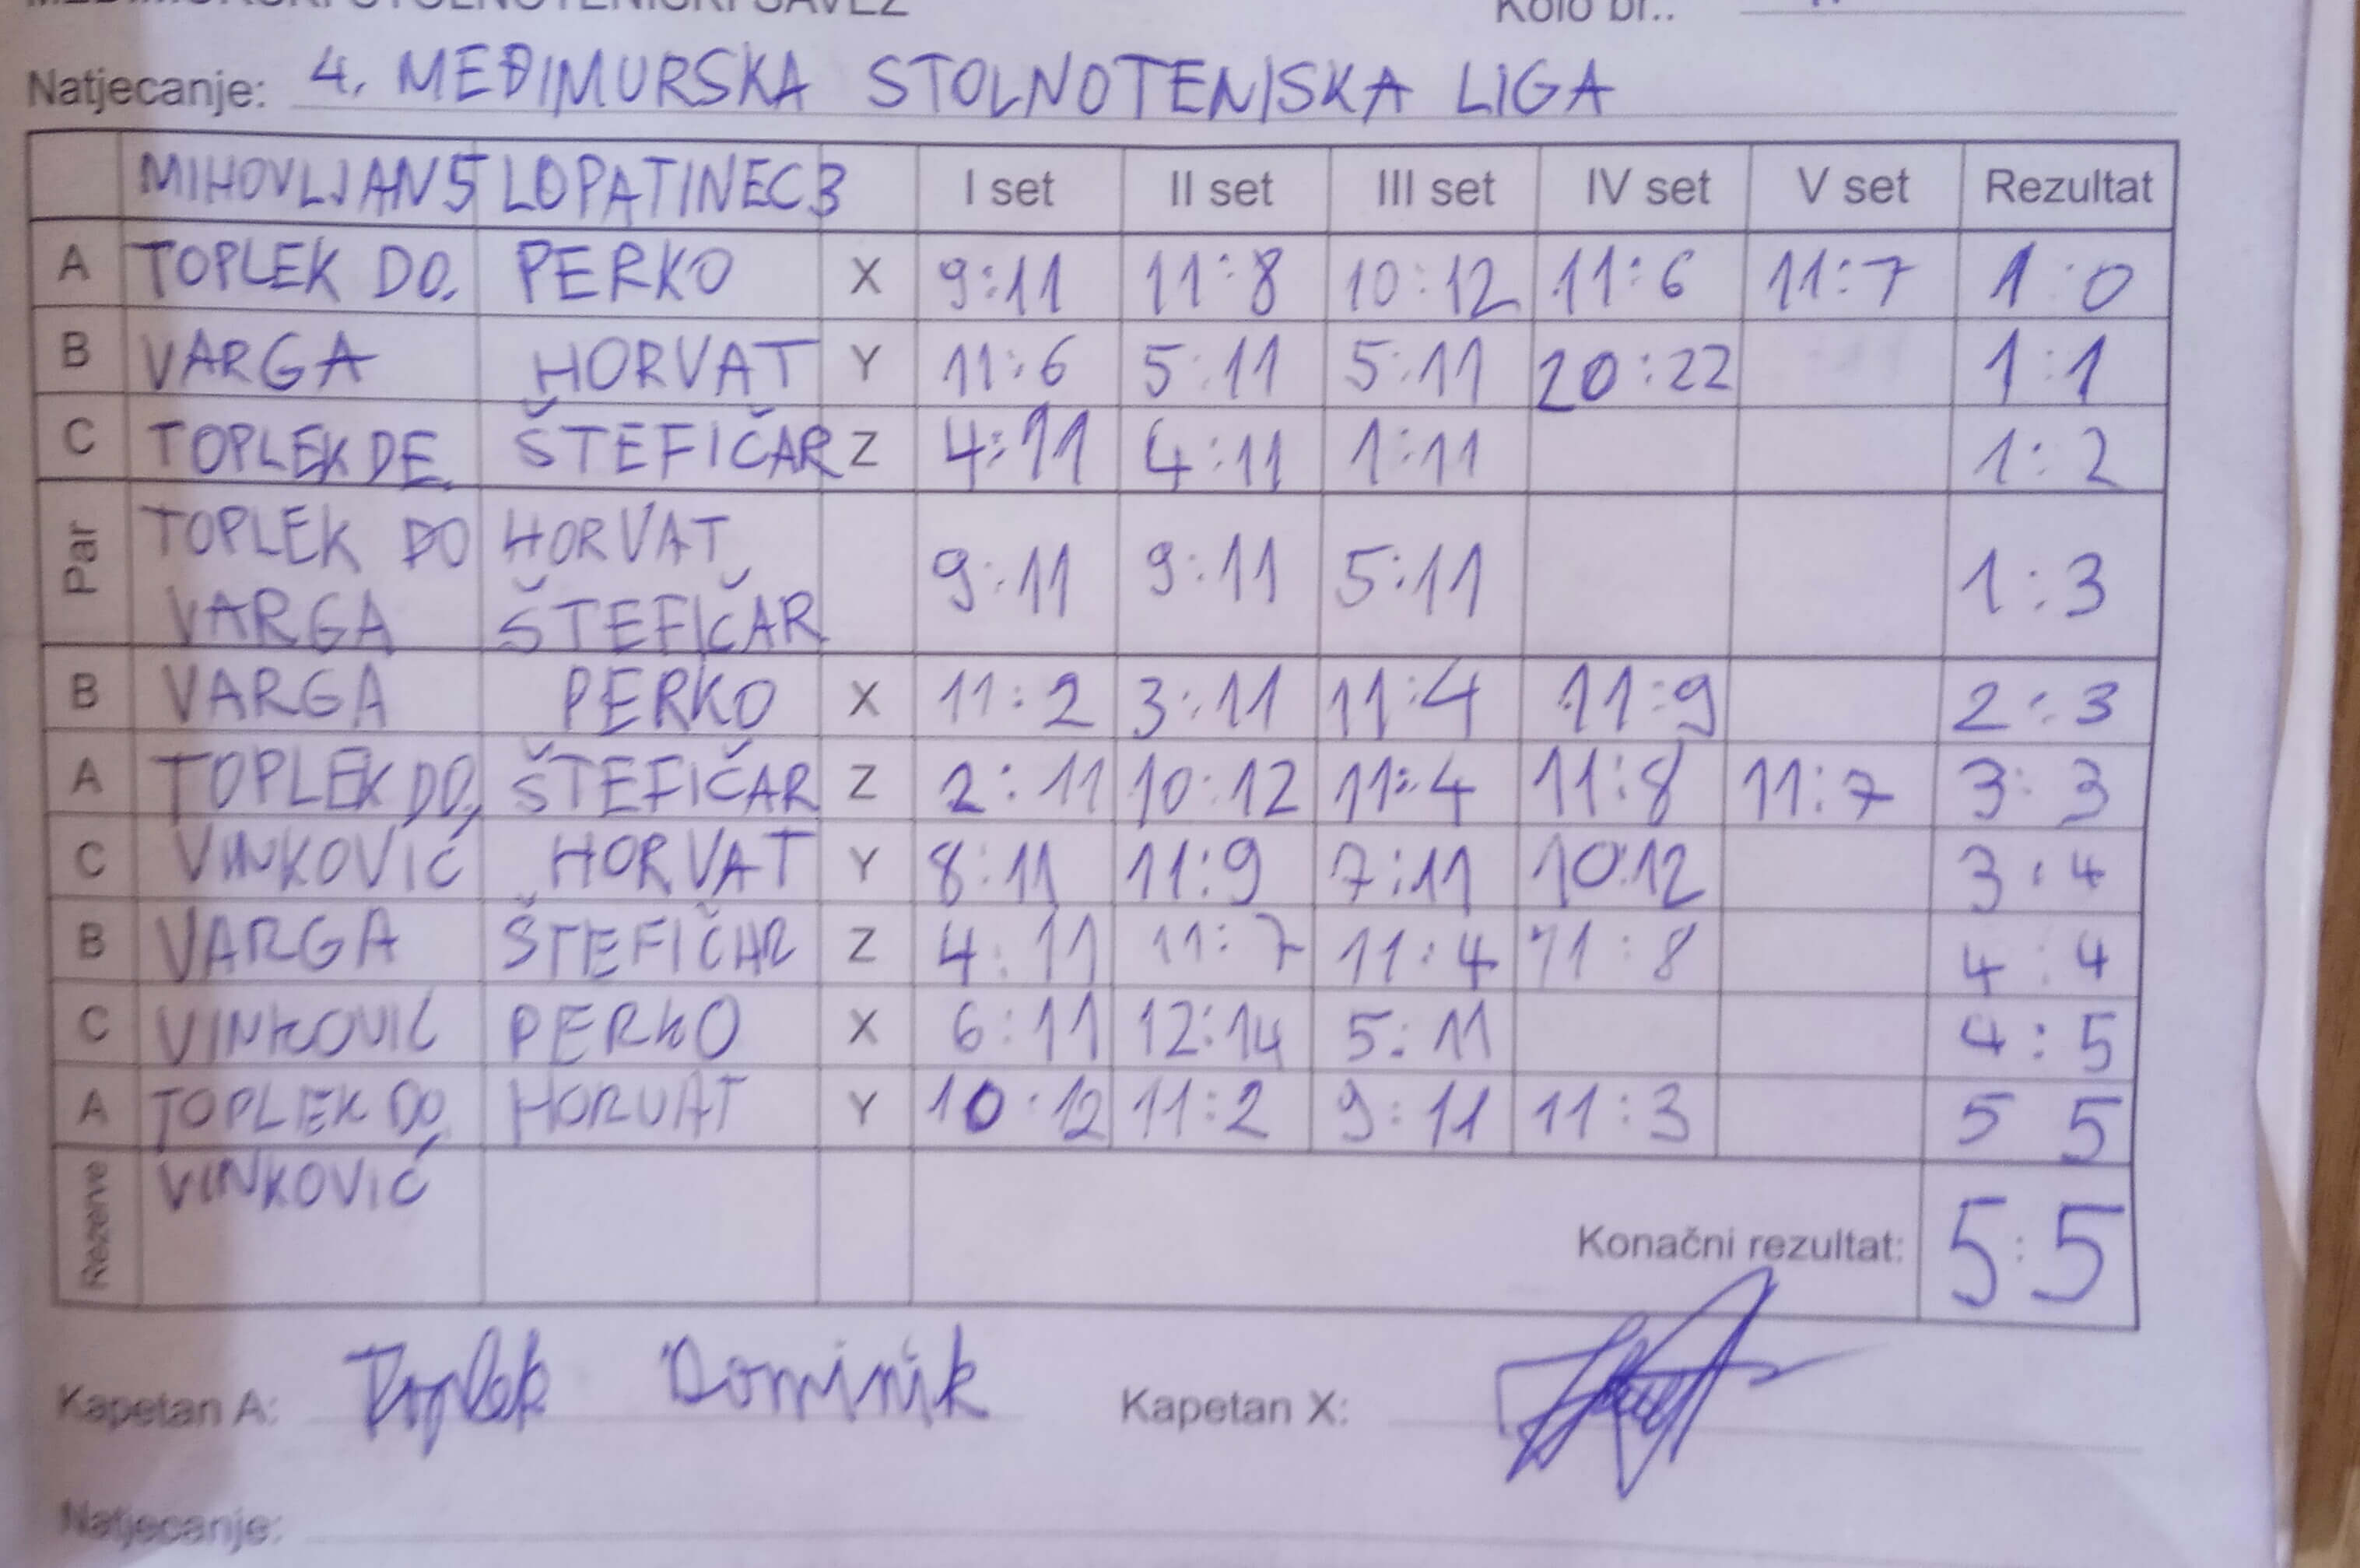 MEĐIMURSKI STOLNOTENISKI SAVEZ Kolo br.:
Natjecanje: 4. MEĐIMURSKA STOLNOTENISKA LIGA
MIHOVLJAN5 LOPATINEC3 I set II set III set IV set V set Rezultat
A TOPLEK DO. PERKO X 9:11 11:8 10:12 11:6 11:7 1:0
B VARGA HORVAT Y 11:6 5:11 5:11 20:22 1:1
C TOPLEK DE. ŠTEFIČAR Z 4:11 4:11 1:11 1:2
Par TOPLEK DO HORVAT 9:11 9:11 5:11 1:3
VARGA ŠTEFIČAR
B VARGA PERKO X 11:2 3:11 11:4 11:9 2:3
A TOPLEK DO, ŠTEFIČAR Z 2:11 10:12 11:4 11:8 11:7 3:3
C VINKOVIĆ HORVAT Y 8:11 11:9 7:11 10:12 3:4
B VARGA ŠTEFIČAR Z 4:11 11:7 11:4 11:8 4:4
C VINKOVIĆ PERKO X 6:11 12:14 5:11 4:5
A TOPLEK DO HORVAT Y 10:12 11:2 9:11 11:3 5 5
Rezerve VINKOVIĆ
Konačni rezultat: 5:5
Kapetan A: Toplek Dominik Kapetan X:
Natjecanje: